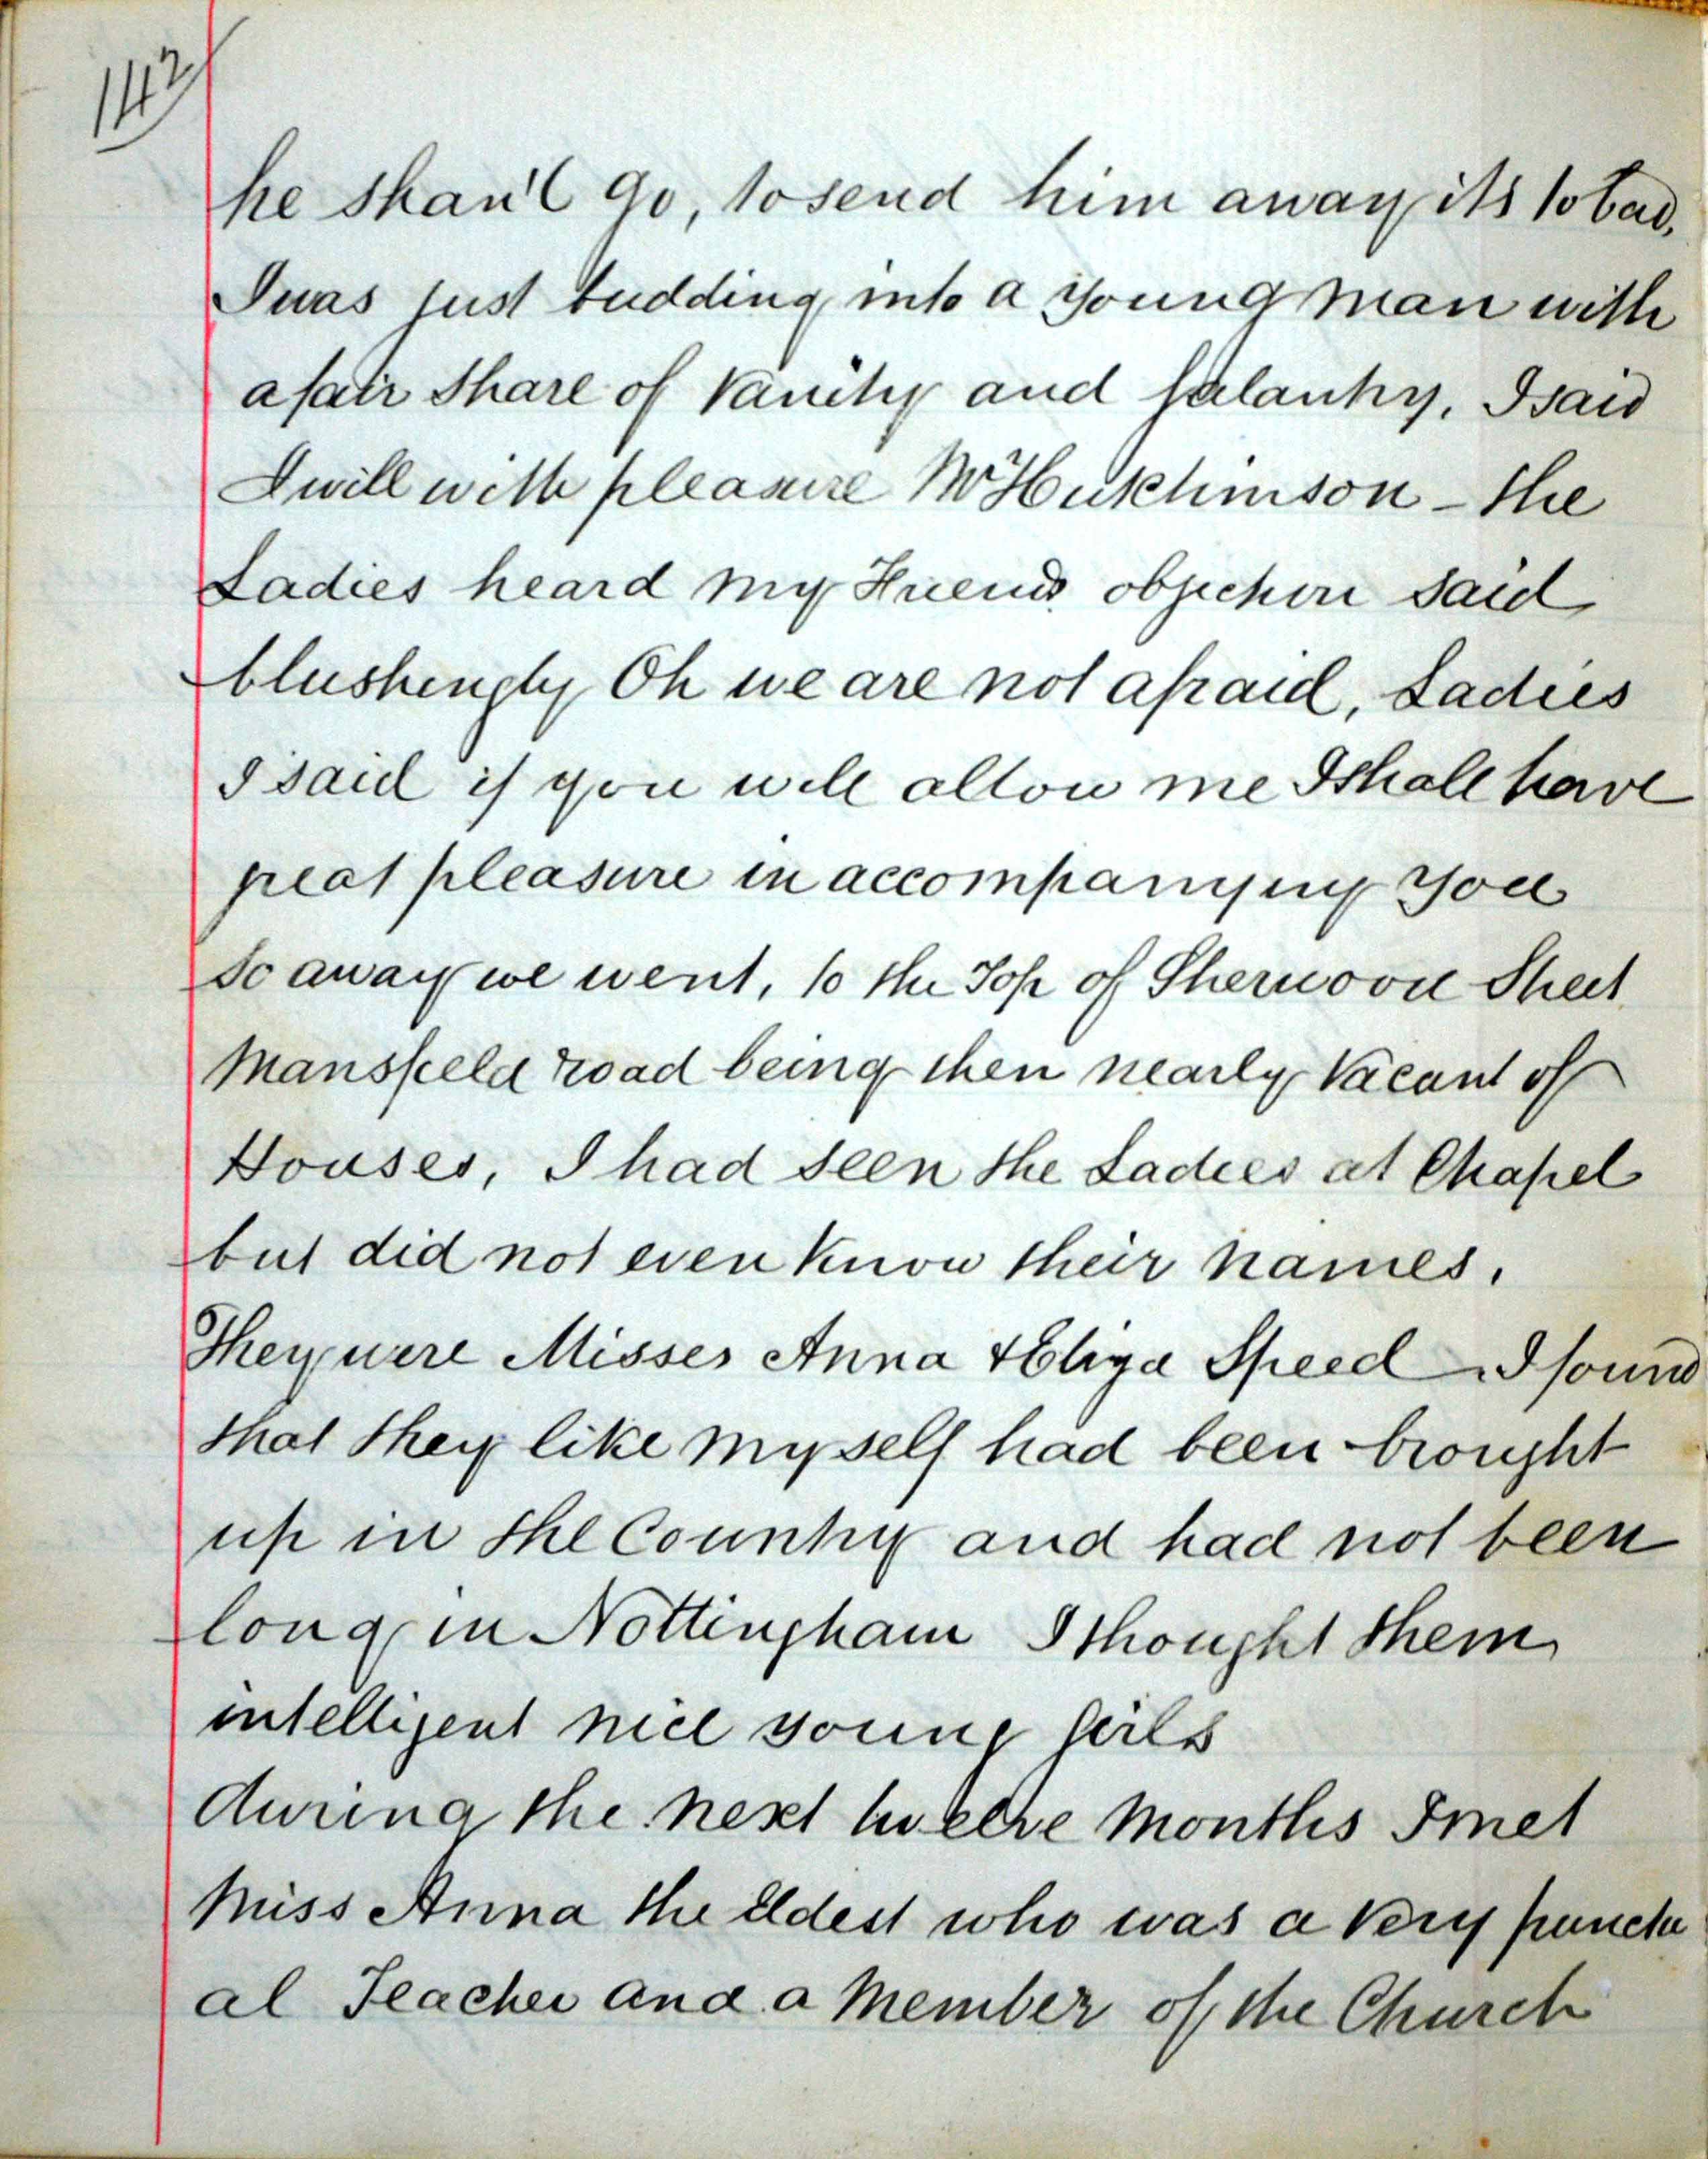 142
he shan't go, to send him away its to bad,
I was just budding into a young man with
a fair share of Vanity and galantry, I said
I will with pleasure Mr Hutchinson - the
Ladies heard my Friends objection said
blushingly Oh we are not afraid, Ladies
I said if you will allow me I shall have
great pleasure in accompanying you
So away we went, to the Top of Sherwood Street
Mansfield road being then nearly Vacant of
Houses, I had seen the Ladies at Chapel
but did not even know their names.
They were Misses Anna & Eliza Speed I found
that they like myself had been brought
up in the Country and had not been
long in Nottingham I thought them
intelligent nice young girls
during the next twelve months I met
Miss Anna the Eldest who was a very punctu
al Teacher and a Member of the Church